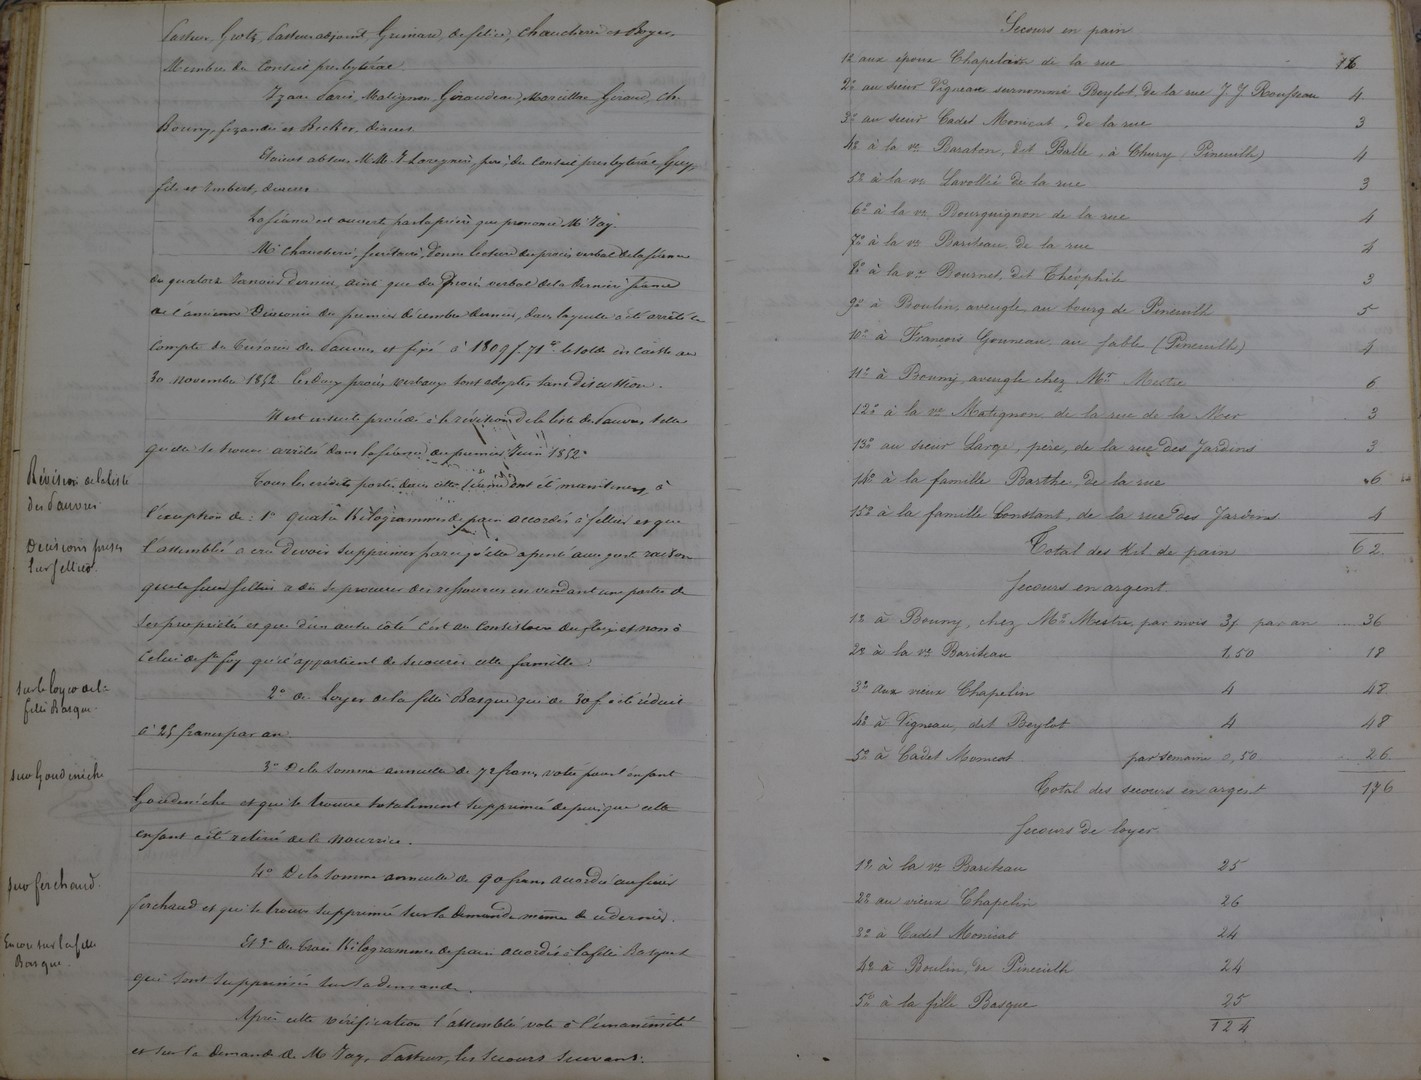 Pasteur, Grotz, Pasteur adjoint, Grimard, de félice, Chaucherie et Boyer,
Membres du Conseil presbytéral.
Izaac Matignon, Giraudeau, Marcillac, Giraud,
Bouny, et Becker, diacres
Etaient absens M.M. père, du Conseil presbytéral,
fils et Imbert, diacres
La séance est ouverte par la prière que prononce Mr Vay.
Mr Chaucherie, secrétaire, donne lecture du procès verbal de la séance
du quatorze Janvier dernier, ainsi que du procès verbal de la dernière séance
de l'ancienne Diaconie du premier décembre dernier, dans laquelle a été arrêté le
compte du Trésorier des Pauvres et fixé à 1809 f. 71 c. le solde en caisse au
30 novembre 1852 Ces deux procès verbaux sont adoptés sans discussion.
Il est ensuite procédé à la révision de la liste des Pauvres telle
qu'elle se trouve arrêtée dans la séance du premier Juin 1852.
Révision de la liste
des Pauvres
Tous les secours portés dans cette séance ont été maintenus, à
l'exception de: 1° quatre Kilogrammes de pain accordés à fellier et que
Décisions prises
Sur fellier.
l'assemblée a cru devoir supprimer parce qu'elle a pensé avec juste raison
que le sieur fellier a dû se procurer des ressources en vendant une partie de
ses propriétés et que d'un autre côté c'est au Consistoire du fleix et non à
celui de Ste foy qu'il appartient de secourir cette famille.
sur le loyer de la
fille Basque.
2° du loyer de la fille Basque qui de 30 f a été réduit
à 25 francs par an
sur Goudenèche
3° De la somme annuelle de 72 francs votée pour l'enfant
Goudenèche et qui se trouve totalement supprimée depuis que cette
enfant a été retirée de la nourrice.
sur ferchaud.
4° De la somme annuelle de 90 francs accordée au sieur
ferchaud et qui se trouve supprimée sur la demande même de ce dernier.
Encore sur la fille
Basque.
Et 5° des trois Kilogrammes de pain accordés à la fille Basque et
qui sont supprimés sur sa demande.
Après cette vérification l'assemblée vote à l'unanimité
et sur la demande de M Vay, Pasteur, les secours suivans:
Secours en pain
1° aux époux Chapelin de la rue
2° au sieur Vigneau surnommé Beylot, de la rue J J Rousseau 4
3° au sieur Cadet Monicat, de la rue 3
4° à la ve Baraton, dit Balle, à Chury (Pineuilh) 4
5° à la ve Lavollié de la rue 3
6° à la ve Bourguignon de la rue 4
7° à la ve Bariteau, de la rue 4
8° à la ve Bournet, dit Théophile 3
9° à Boulin, aveugle, au bourg de Pineuilh 5
10° à François Gouneau, au sable (Pineuilh) 4
11° à Bouny, aveugle chez Mr Mestre 6
12° à la ve Matignon de la rue de la Mer 3
13° au sieur Large, père, de la rue des Jardins 3
14° à la famille Barthe, de la rue 6
15° à la famille Constant, de la rue des Jardins 4
Total des Kil de pain 62.
Secours en argent.
1° à Bouny, chez Mr Mestre, par mois 3f par an 36
2° à la ve Bariteau 1,50 18
3° aux vieux Chapelin 4 48
4° à Vigneau, dit Beylot 4 48
5° à Cadet Monicat par semaine 0,50 26
Total des secours en argent 176
Secours de loyer.
1° à la ve Bariteau 25
2° au vieux Chapelin 26
3° à Cadet Monicat 24
4° à Boulin, de Pineuilh 24
5° à la fille Basque 25
124